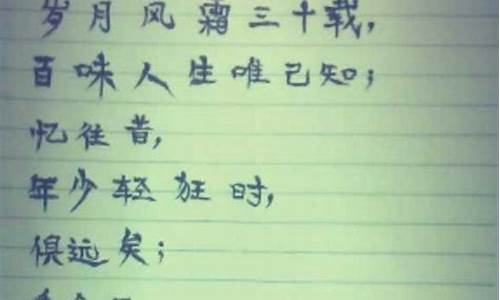 岁月风霜三十载，
百味人生唯己知；
忆往昔，
年少轻狂时，
俱远矣；